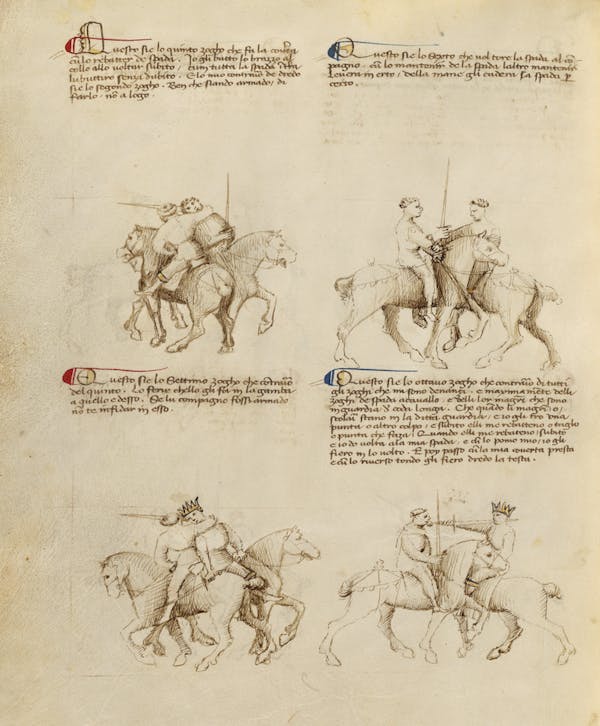 Questo sie lo quinto zogho che fu la coverta
cu lo rebatter de spada. Jo gli butto lo brazzo al
collo allo voltar subito / cum tutta la spada
lu buttiro senza dubito. E lo mio contrario de dredo
sie lo segondo zogho. Ben che siando armado, di
farlo, no a logo.
Questo sie lo Sexto che vol tore la spada al com
pagno. cu lo mantenir de la spada laltro mantenir
levera in erto / della mane gli cadera la spada p
certo.
Questo sie lo Settimo zogho che contrario
del quinto. Lo ferir chello gli fa in la gamba
a quello e desso. Se lu compagno foss armado
no te infidar in esso.
Questo sie lo ottavo zogho che contrario di tutti
gli zoghi che mi sono denanci. e maximamente delli
zoghi de spada a cavallo. e delli lor magistri che sono
in guardia d coda longa. Che quado li magistri o /
scolari stano in la ditta guardia / e io gli tro una
punta o altro colpo / e subito elli me rebatteno o taglo
o punta che faza / Quando elli me rebateno / subito
e io do volta ala mia spada / e cu lo pomo mio / io gli
fiero in lo volto. E poy passo cu la mia coverta presta
e cu lo riverso tondo gli fiero dredo la testa.